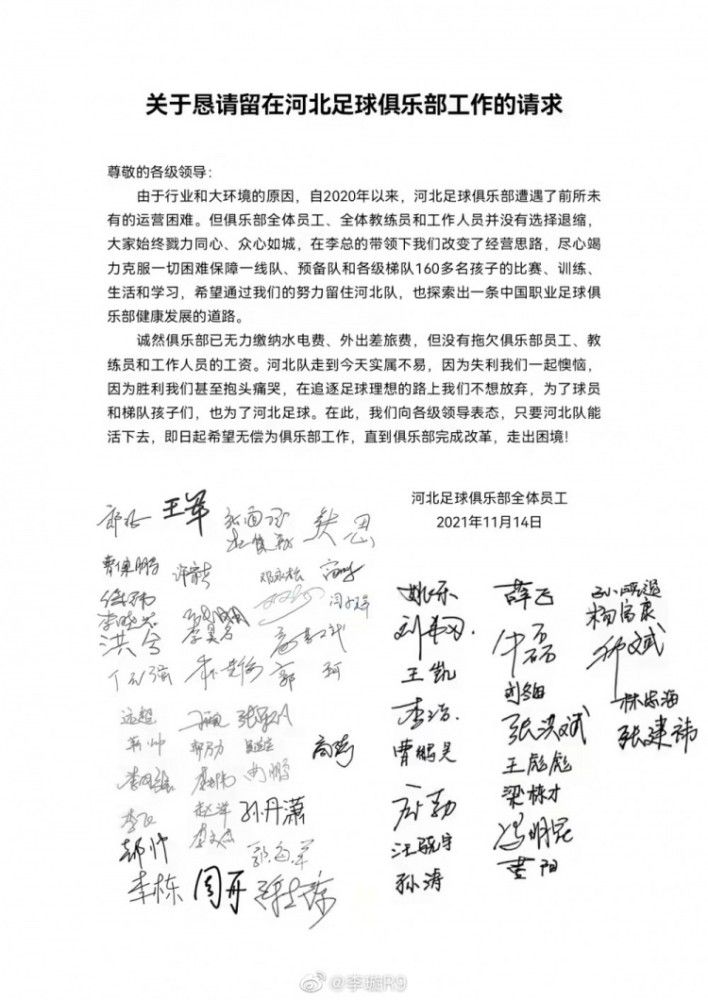 关于恳请留在河北足球俱乐部工作的请求
尊敬的各级领导：
由于行业和大环境的原因，自2020年以来，河北足球俱乐部遭遇了前所未
有的运营困难。但俱乐部全体员工、全体教练员和工作人员并没有选择退缩，
大家始终戮力同心、众心如城，在李总的带领下我们改变了经营思路，尽心竭
力克服一切困难保障一线队、预备队和各级梯队160多名孩子的比赛、训练、
生活和学习，希望通过我们的努力留住河北队，也探索出一条中国职业足球俱
乐部健康发展的道路。
诚然俱乐部已无力缴纳水电费、外出差旅费，但没有拖欠俱乐部员工、教
练员和工作人员的工资。河北队走到今天实属不易，因为失利我们一起懊恼，
因为胜利我们甚至抱头痛哭，在追逐足球理想的路上我们不想放弃，为了球员
和梯队孩子们，也为了河北足球。在此，我们向各级领导表态，只要河北队能
活下去，即日起希望无偿为俱乐部工作，直到俱乐部完成改革，走出困境!
河北足球俱乐部全体员工
2021年11月14日
王军
曹保鹏
李晓芯
洪兮
李昊名
郭珂
孙丹潇
李栋
周丹
姚乐
王凯
李浩
曹鹏昊
汪晓宇
孙涛
薛飞
牛磊
张洪斌
王彪彪
梁栋才
冯明昆
黄阳
杨富康
林忠海
张建祎
@李璇R9